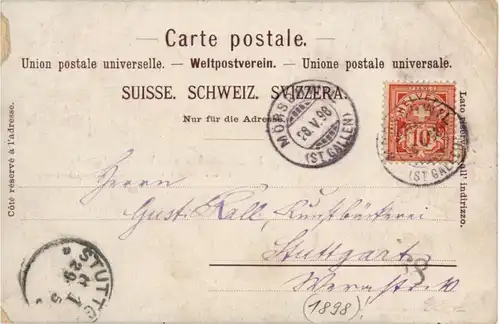 Carte postale.
Union postale universelle. — Weltpostverein. — Unione postale universale.
SUISSE. SCHWEIZ. SVIZZERA.
Nur für die Adresse
Côté réservé à l'adresse.
Lato all' indirizzo.
28.V.98
(ST. GALLEN)
HELVETIA
10
(ST GALLEN
Herrn
Gust. Kall, Kunstbückerei
Stuttgart
(1898)
STUTTG